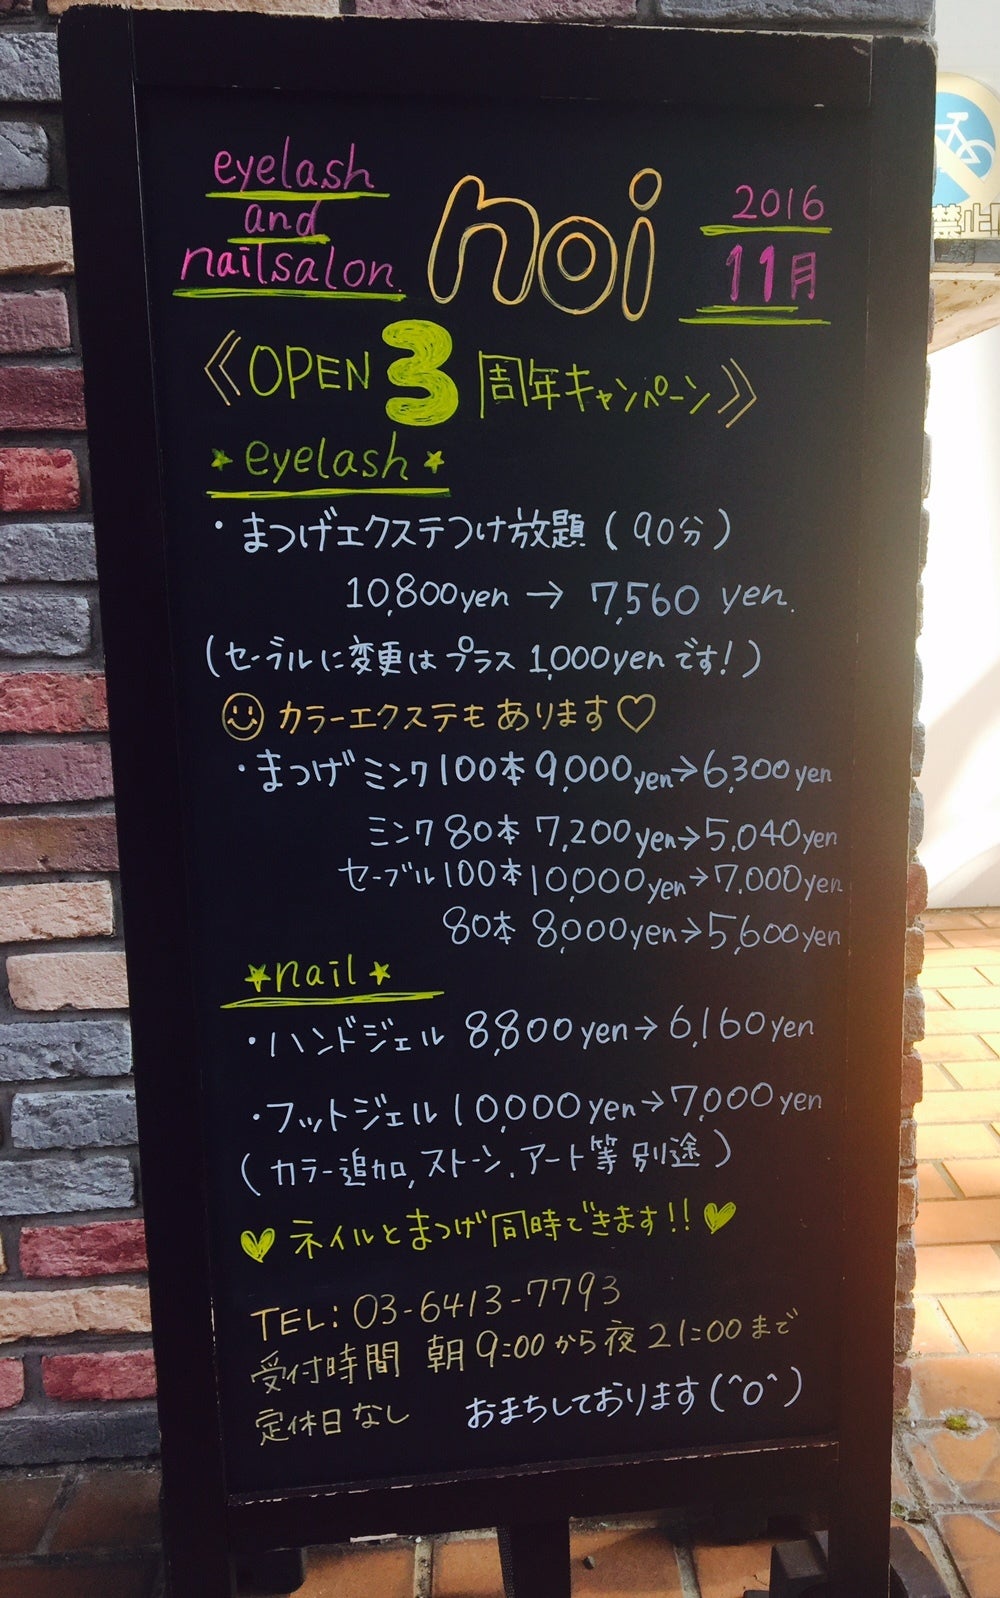 eyelash
and
nailsalon.
noi
2016
11月
《OPEN 3周年キャンペーン》
★eyelash★
・まつげエクステつけ放題(90分)
10,800yen→7,560 yen.
(セーブルに変更はプラス1,000yenです!)
カラーエクステもあります♡
・まつげミンク100本9,000yen→6,300yen
ミンク80本 7,200yen→5,040yen
セーブル100本10,000yen→7,000yen
80本 8,000yen→5,600yen
★nail★
・ハンドジェル 8,800yen→6,160yen
・フットジェル10,000yen→7,000yen
(カラー追加,ストーン,アート等別途)
♥ネイルとまつげ同時できます!!♥
TEL:03-6413-7793
受付時間 朝9:00から夜21:00まで
定休日なし おまちしております(^o^)
禁止